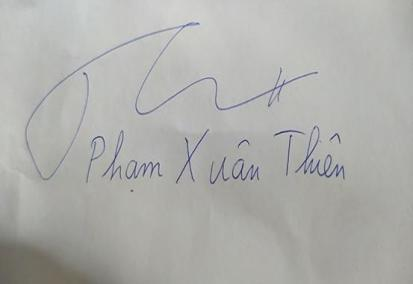 Phạm Xuân Thiên